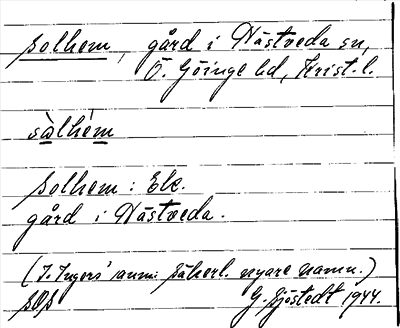 Solhem, gård i Nästveda sn,
Ö. Göinge hd, Krist. l.
sàlhém
Solhem : Ek.
gård i Nästveda.
(I. Ingers' anm: säkerl. nyare namn.)
G. Sjöstedt 1944.